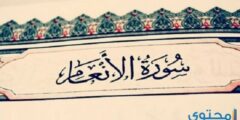 سُورَةُ الأَنْعَامِ
محتوى